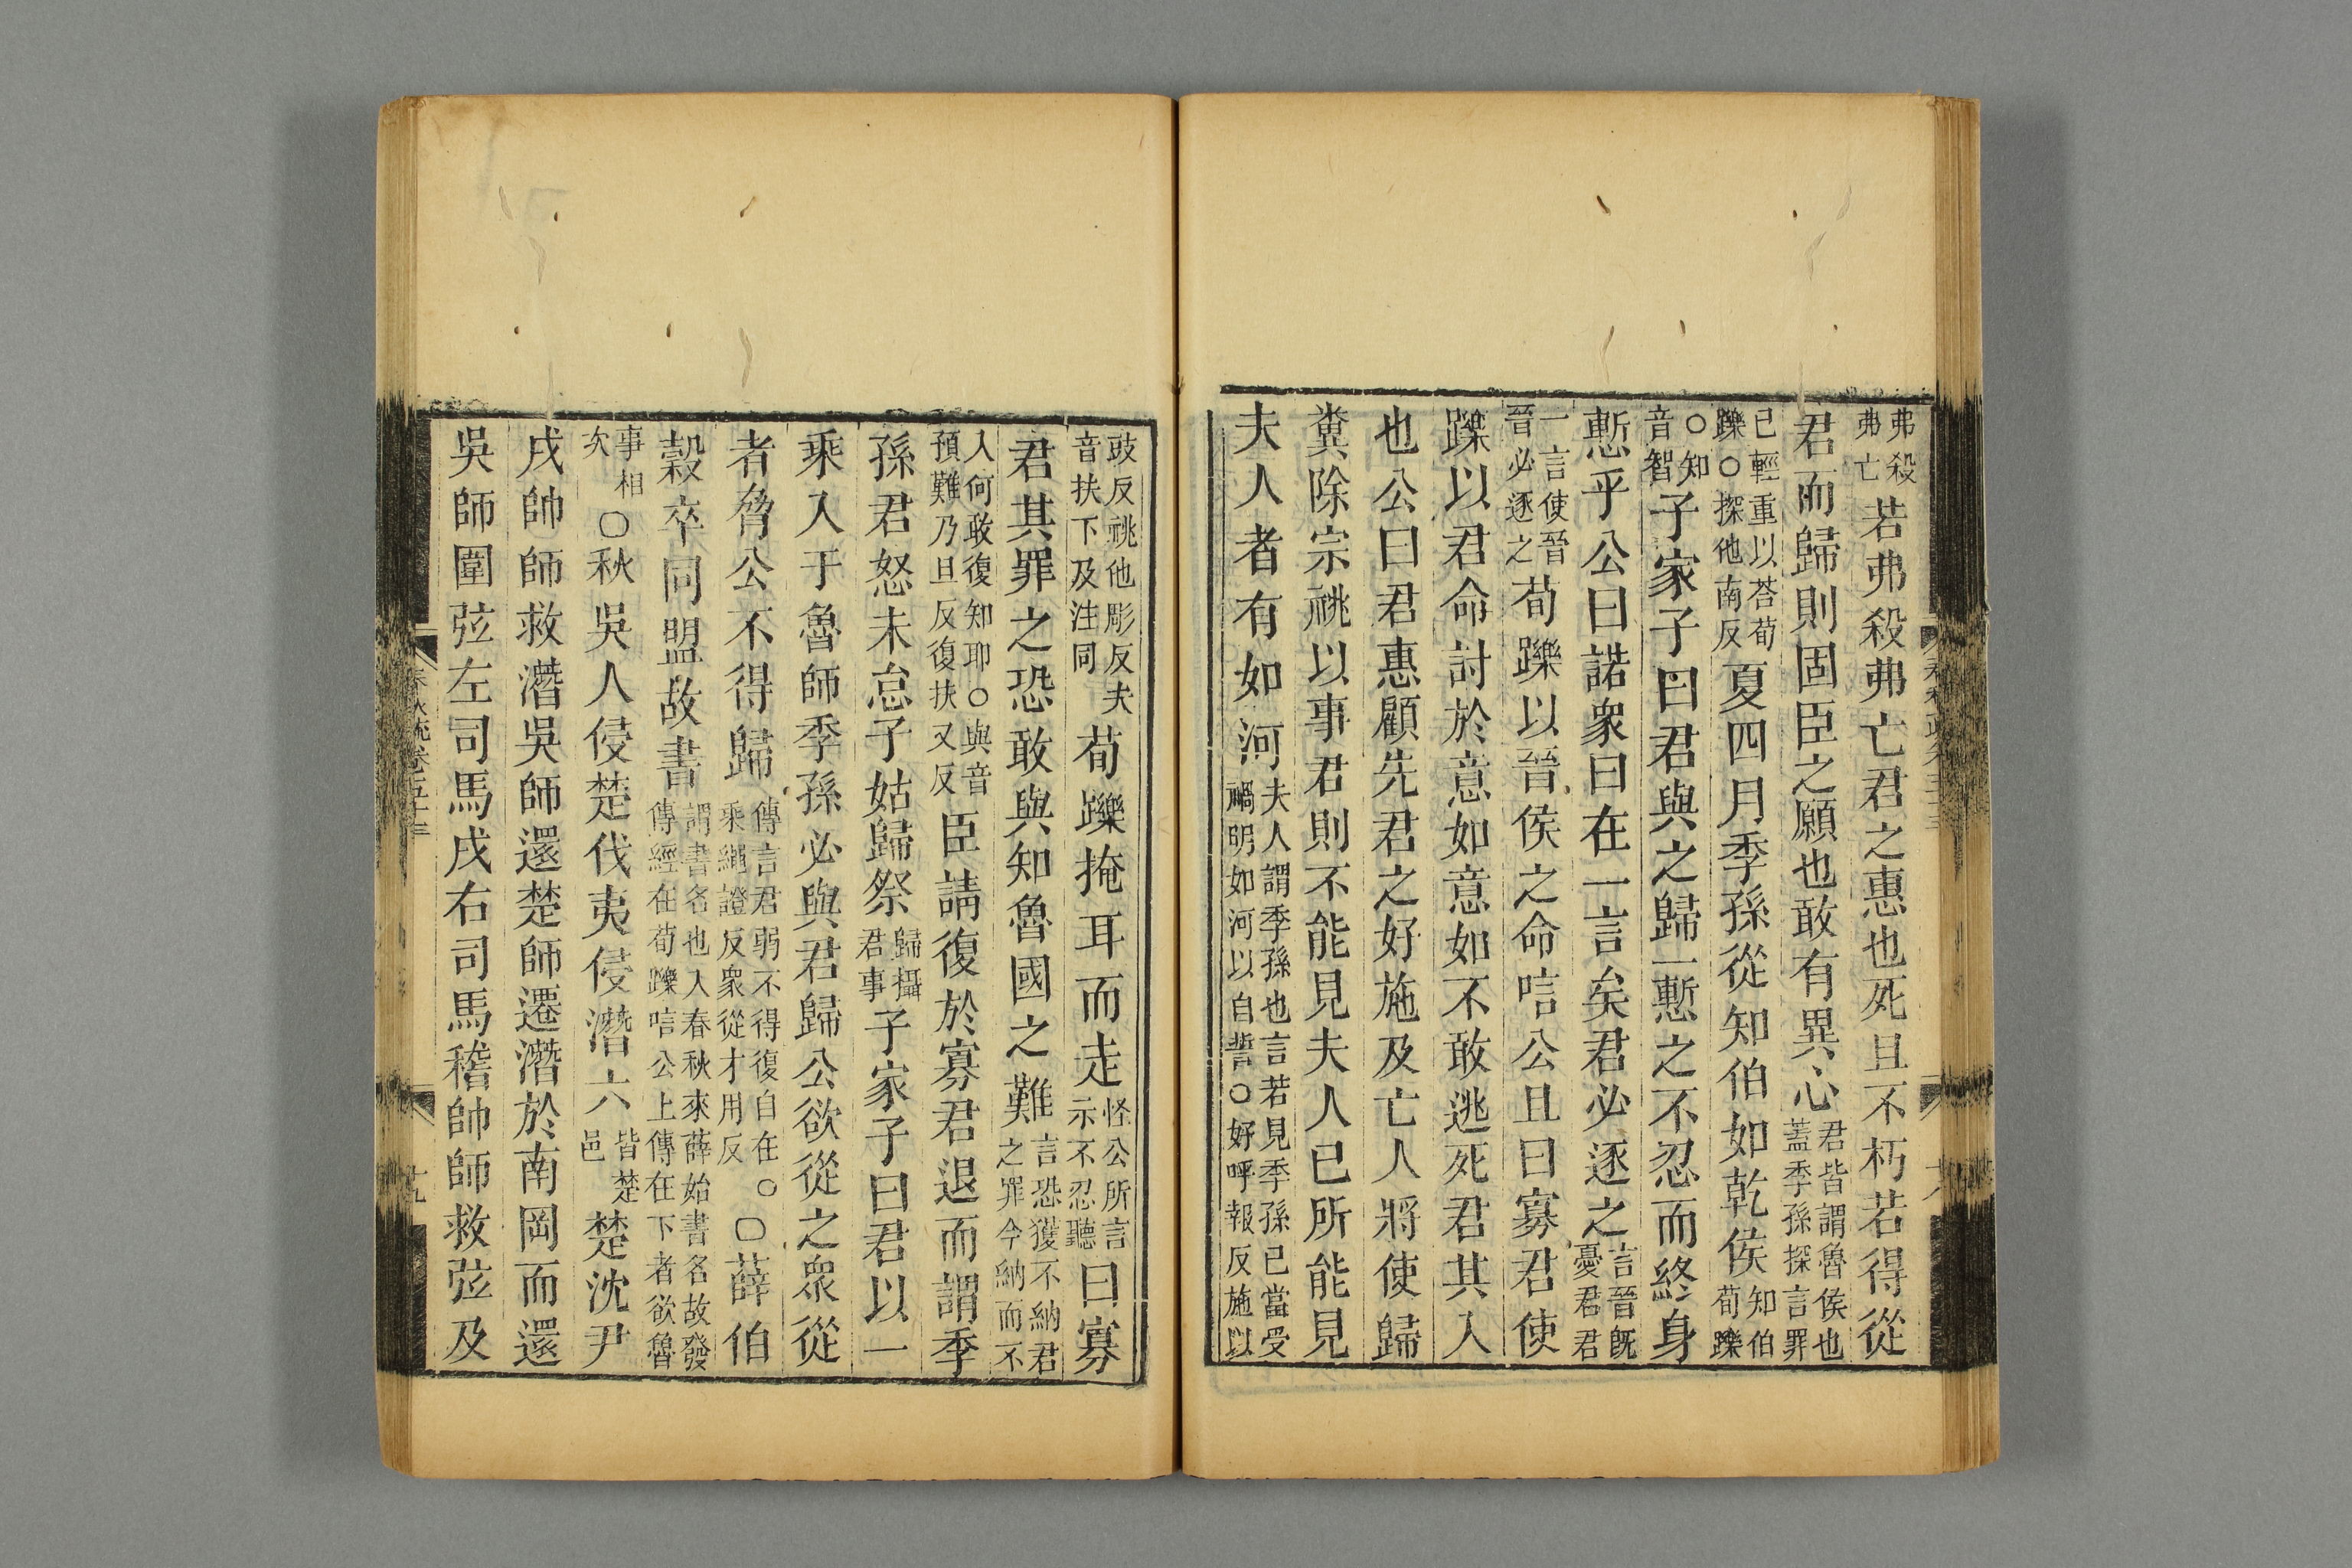 弗殺弗亡若弗殺弗亡君之惠也死且不朽若得從
君而歸則固臣之願也敢有異心君皆謂魯侯也蓋季孫探言罪
己輕重以荅荀躒○探他南反夏四月季孫從知伯如乾侯知伯荀躒
○知音智子家子曰君與之歸一慙之不忍而終身
慙乎公曰諾衆曰在一言矣君必逐之言晉旣憂君君
一言使晉晉必逐之荀躒以晉侯之命唁公且曰寡君使
躒以君命討於意如意如不敢逃死君其入
也公曰君惠顧先君之好施及亡人將使歸
糞除宗祧以事君則不能見夫人已所能見
夫人者有如河夫人謂季孫也言若見季孫已當受禍明如河以自誓○好呼報反施以
豉反祧他彫反夫音扶下及注同荀躒掩耳而走怪公所言示不忍聽曰寡
君其罪之恐敢與知魯國之難言恐獲不納君之罪今納而不
入何敢復知耶○與音預難乃旦反復扶又反臣請復於寡君退而謂季
孫君怒未怠子姑歸祭歸攝君事子家子曰君以一
乘入于魯師季孫必與君歸公欲從之衆從
者脅公不得歸傳言君弱不得復自在○乘繩證反衆從才用反○薛伯
穀卒同盟故書謂書名也入春秋來薛始書名故發傳經在荀躒唁公上傳在下者欲魯
事相次○秋吳人侵楚伐夷侵潛六皆楚邑楚沈尹
戌帥師救潛吳師還楚師遷潛於南岡而還
吳師圍弦左司馬戌右司馬稽帥師救弦及
春秋疏卷五十三
十九